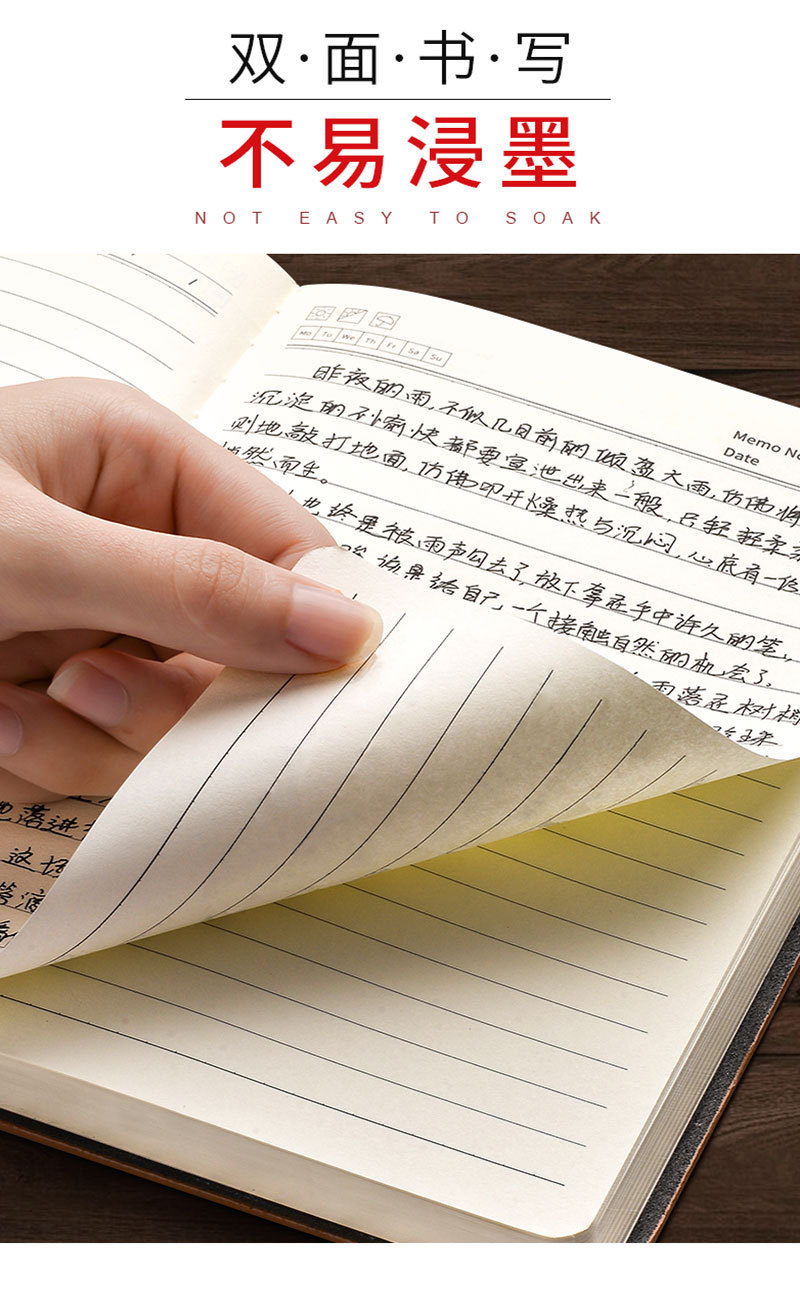 双·面·书·写
不易浸墨
NOT EASY TO SOAK
Mo Tu We Th Fr Sa Su
Memo No
Date
昨夜的雨,不似几日前的倾盈大雨,仿佛将
沉淀的不愉快都要宣泄出来一般,只轻轻柔柔
则地敲打地面,仿佛叩开燥热与沉闷,心底有一份
然而生。
也终是被雨声勾去了,放下拿在手中许久的笔,
给自己,一个接触自然的机会了。
雨落在树梢
地落进
这场